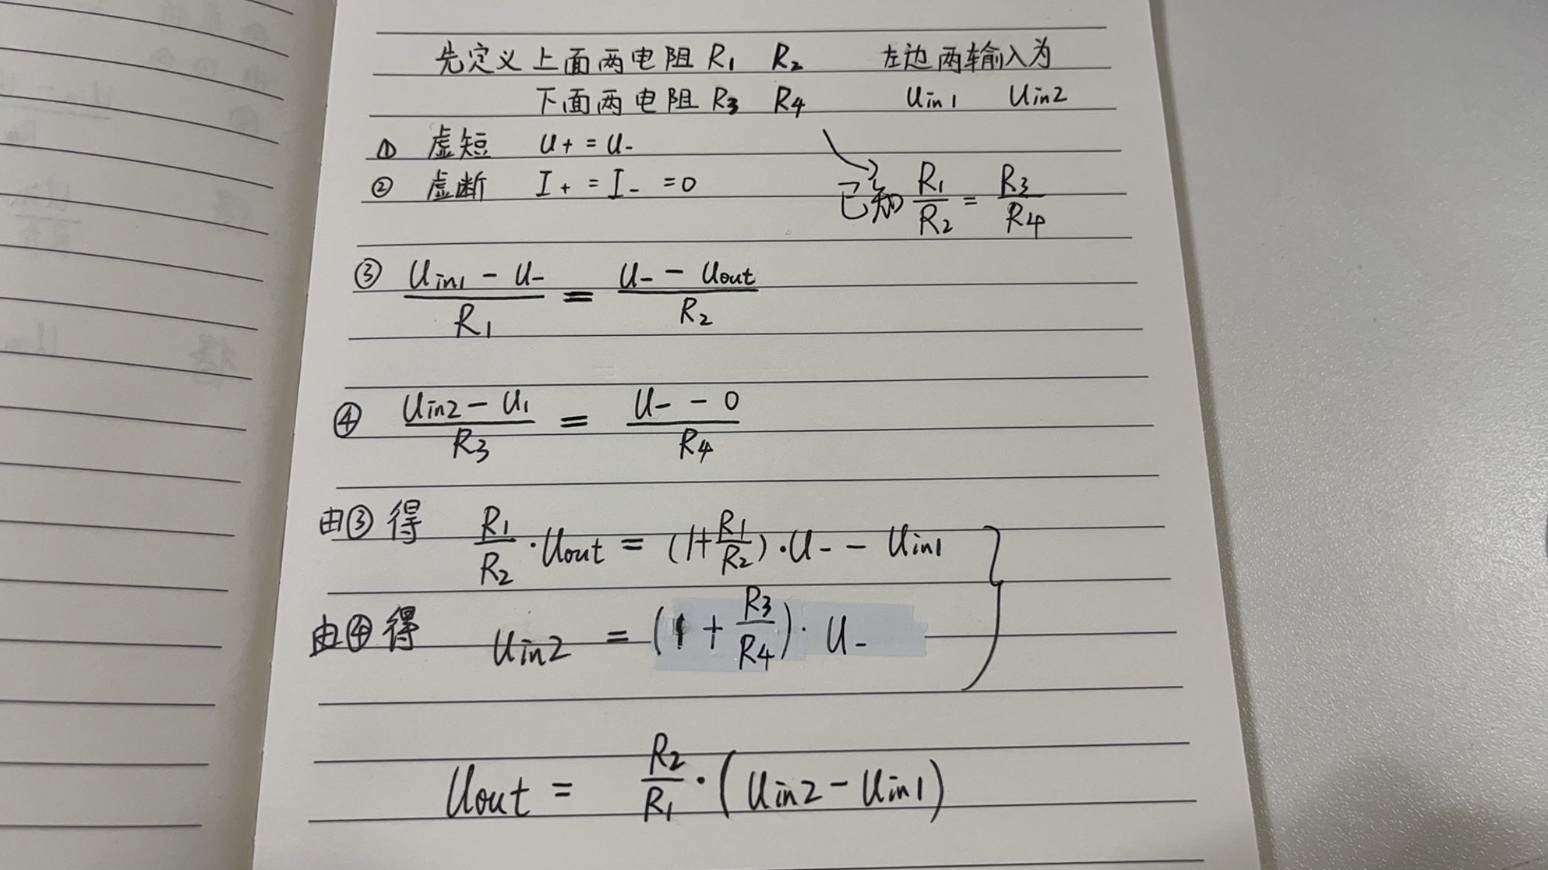 先定义上面两电阻 R₁ R₂ 左边两输入为
下面两电阻 R₃ R₄ Uin1 Uin2
① 虚短 U+ = U-
② 虚断 I+ = I- = 0
已知 R₁/R₂ = R₃/R₄
③ (Uin1 - U-)/R₁ = (U- - Uout)/R₂
④ (Uin2 - U₁)/R₃ = (U- - 0)/R₄
由③得 R₁/R₂ · Uout = (1+R₁/R₂)·U- - Uin1
由④得 Uin2 = (1 + R₃/R₄)· U-
Uout = R₂/R₁ · (Uin2 - Uin1)